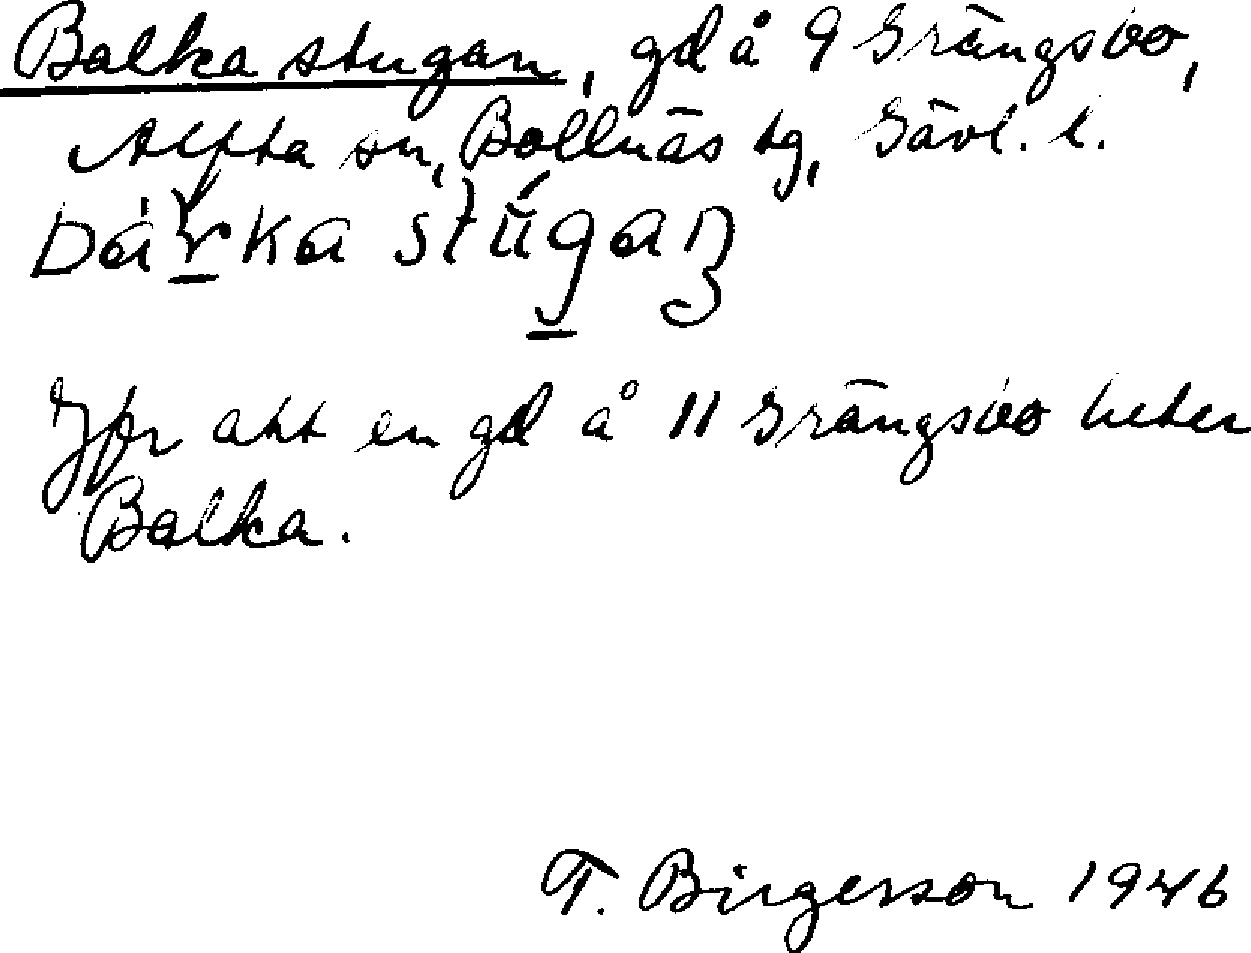 Balka stugan, gd å 9 Grängsbo,
Alfta sn, Bollnäs tg, Gävl. l.
Jfr att en gd å 11 Grängsbo heter
Balka.
T. Birgersson 1946